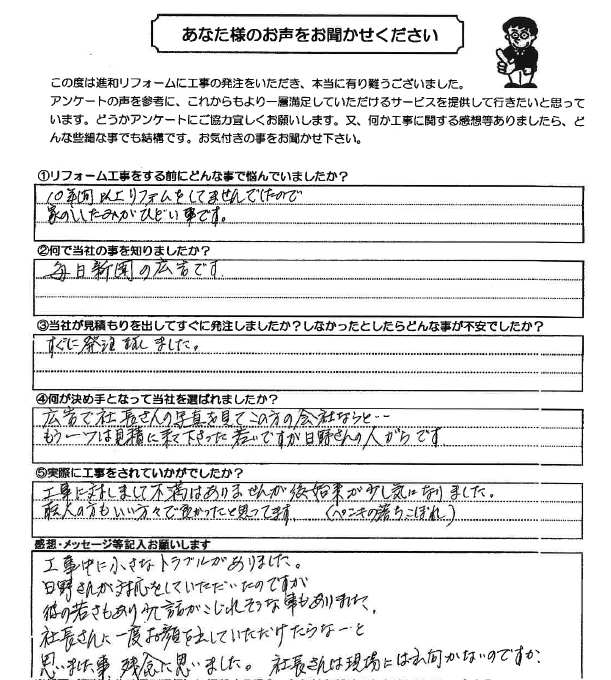 あなた様のお声をお聞かせください
この度は進和リフォームに工事の発注をいただき、本当に有り難うございました。
アンケートの声を参考に、これからもより一層満足していただけるサービスを提供して行きたいと思って
います。どうかアンケートにご協力宜しくお願いします。又、何か工事に関する感想等ありましたら、ど
んな些細な事でも結構です。お気付きの事をお聞かせ下さい。
①リフォーム工事をする前にどんな事で悩んでいましたか？
10年間以上リフォムをしてませんでしたので
家のいたみがひどい事です。
②何で当社の事を知りましたか？
毎日新聞の広告です
③当社が見積もりを出してすぐに発注しましたか？しなかったとしたらどんな事が不安でしたか？
すぐに発注致しました。
④何が決め手となって当社を選ばれましたか？
広告で社長さんの写真を見てこの方の会社ならと…
もう一つは見積に来て下さった若いですが日野さんの人がらです
⑤実際に工事をされていかがでしたか？
工事に対しまして不満はありませんが後始末が少し気になりました。
職人の方もいい方々で良かったと思ってます。（ペンキの落ちこぼれ）
感想・メッセージ等記入お願いします
工事中に小さなトラブルがありました。
日野さんが対応をしていただいたのですが
彼の若さもあり少し話がこじれそうな事もありました、
社長さんに一度お顔を出していただけたらなーと
思いました事 残念に思いました。 社長さんは現場には出向かないのですか、